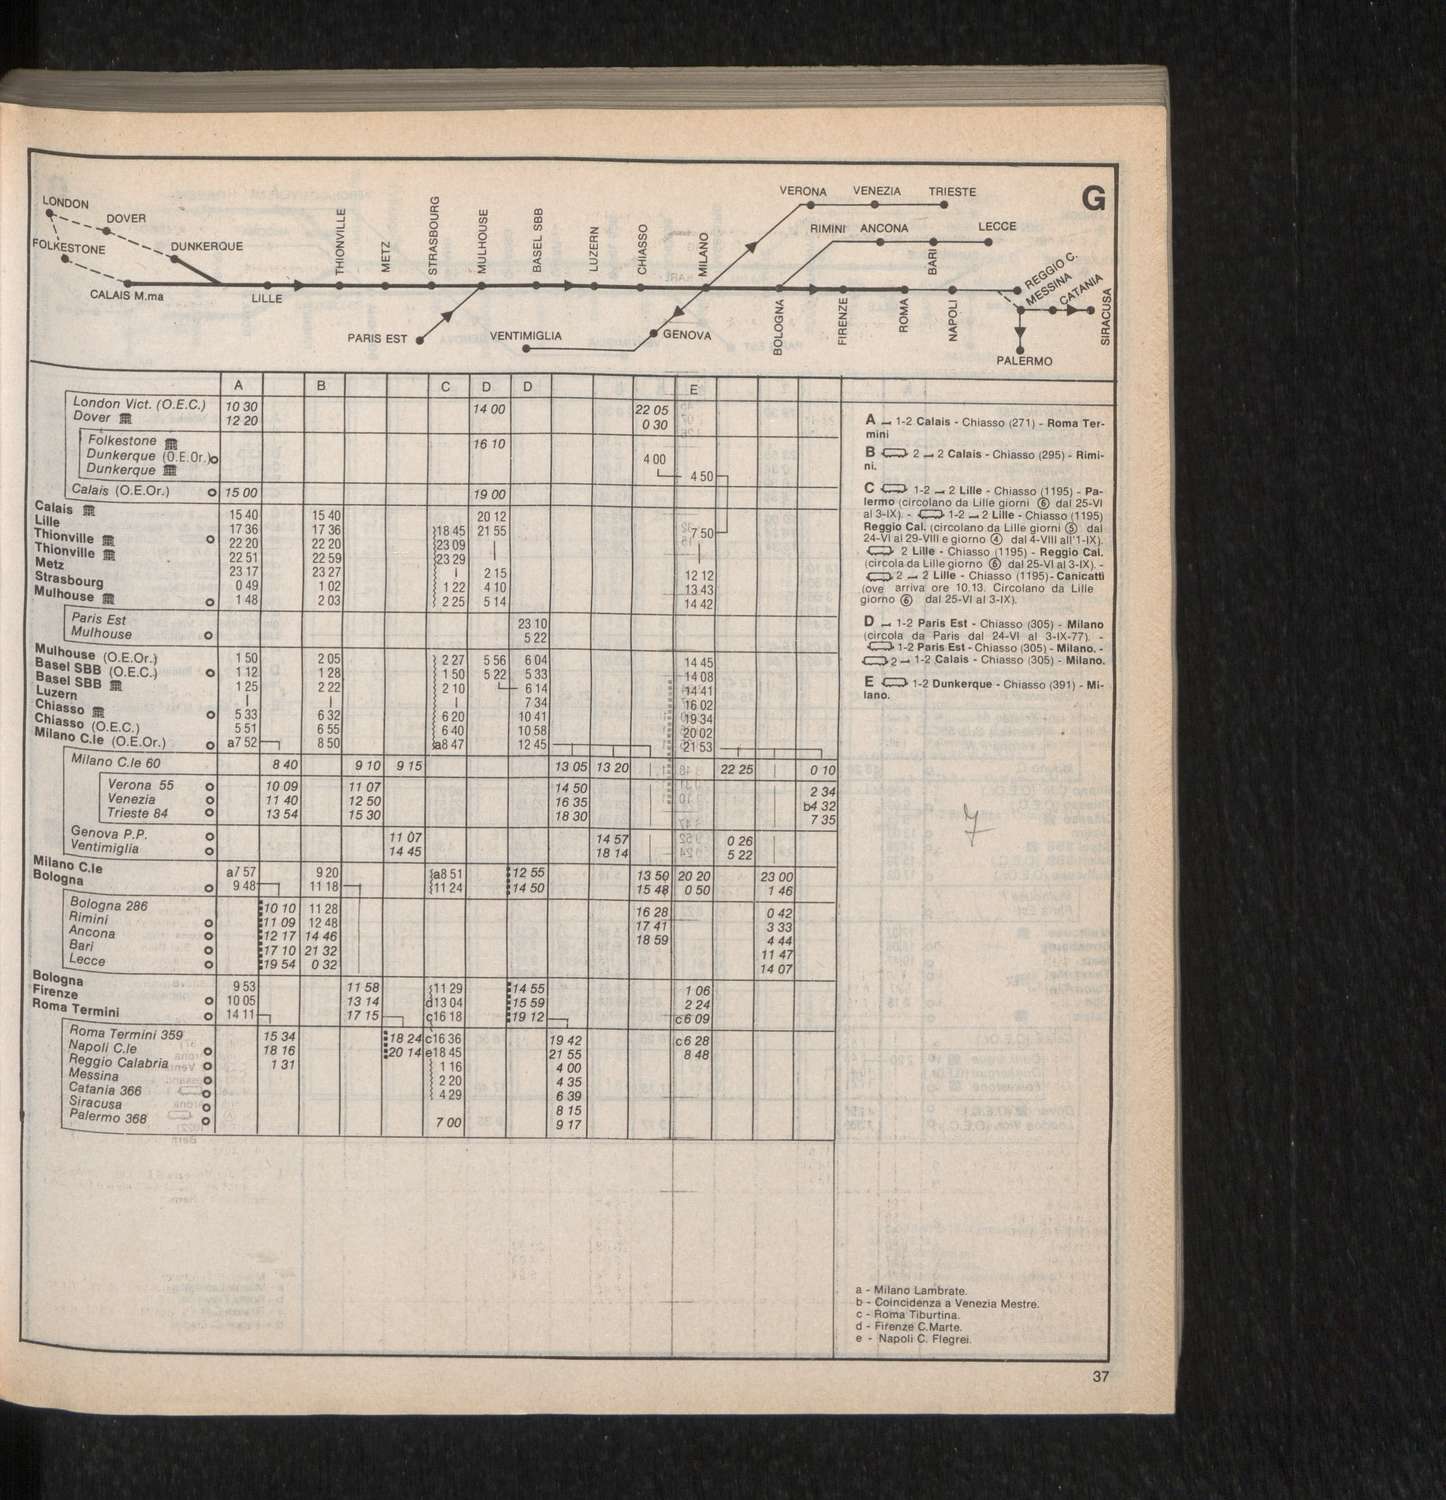 G
LONDON
DOVER
FOLKESTONE
DUNKERQUE
CALAIS M.ma
LILLE
THIONVILLE
METZ
STRASBOURG
MULHOUSE
BASEL SBB
LUZERN
CHIASSO
MILANO
PARIS EST
VENTIMIGLIA
GENOVA
VERONA VENEZIA TRIESTE
RIMINI ANCONA LECCE
BARI
BOLOGNA
FIRENZE
ROMA
NAPOLI
REGGIO C.
MESSINA
CATANIA
SIRACUSA
PALERMO
A B C D D E
London Vict. (O.E.C.) 10 30 14 00 22 05
Dover 12 20 0 30
Folkestone 16 10
Dunkerque (O.E.Or.) 4 00
Dunkerque 4 50
Calais (O.E.Or.) 15 00 19 00
Calais 15 40 15 40 20 12
Lille 17 36 17 36 18 45 21 55 7 50
Thionville 22 20 22 20 23 09
Thionville 22 51 22 59 23 29
Metz 23 17 23 27 2 15 12 12
Strasbourg 0 49 1 02 1 22 4 10 13 43
Mulhouse 1 48 2 03 2 25 5 14 14 42
Paris Est 23 10
Mulhouse 5 22
Mulhouse (O.E.Or.) 1 50 2 05 2 27 5 56 6 04 14 45
Basel SBB (O.E.C.) 1 12 1 28 1 50 5 22 5 33 14 08
Basel SBB 1 25 2 22 2 10 6 14 14 41
Luzern 7 34 16 02
Chiasso 5 33 6 32 6 20 10 41 19 34
Chiasso (O.E.C.) 5 51 6 55 6 40 10 58 20 02
Milano C.le (O.E.Or.) a7 52 8 50 a8 47 12 45 21 53
Milano C.le 60 8 40 9 10 9 15 13 05 13 20 22 25 0 10
Verona 55 10 09 11 07 14 50 2 34
Venezia 11 40 12 50 16 35 b4 32
Trieste 84 13 54 15 30 18 30 7 35
Genova P.P. 11 07 14 57 0 26
Ventimiglia 14 45 18 14 5 22
Milano C.le a7 57 9 20 a8 51 12 55 13 50 20 20 23 00
Bologna 9 48 11 18 11 24 14 50 15 48 0 50 1 46
Bologna 286 10 10 11 28 16 28 0 42
Rimini 11 09 12 48 17 41 3 33
Ancona 12 17 14 46 18 59 4 44
Bari 17 10 21 32 11 47
Lecce 19 54 0 32 14 07
Bologna 9 53 11 58 11 29 14 55 1 06
Firenze 10 05 13 14 d13 04 15 59 2 24
Roma Termini 14 11 17 15 c16 18 19 12 c6 09
Roma Termini 359 15 34 18 24 c16 36 19 42 c6 28
Napoli C.le 18 16 20 14 e18 45 21 55 8 48
Reggio Calabria 1 31 1 16 4 00
Messina 2 20 4 35
Catania 366 4 29 6 39
Siracusa 8 15
Palermo 368 7 00 9 17
A 1-2 Calais - Chiasso (271) - Roma Ter-
mini
B 2 2 Calais - Chiasso (295) - Rimi-
ni.
C 1-2 2 Lille - Chiasso (1195) - Pa-
lermo (circolano da Lille giorni ⑥ dal 25-VI
al 3-IX). - 1-2 2 Lille - Chiasso (1195)
Reggio Cal. (circolano da Lille giorni ⑤ dal
24-VI al 29-VIII e giorno ④ dal 4-VIII all'1-IX).
2 Lille - Chiasso (1195) - Reggio Cal.
(circola da Lille giorno ⑥ dal 25-VI al 3-IX). -
2 2 Lille - Chiasso (1195) - Canicattì
(ove arriva ore 10.13. Circolano da Lille
giorno ⑥ dal 25-VI al 3-IX).
D 1-2 Paris Est - Chiasso (305) - Milano
(circola da Paris dal 24-VI al 3-IX-77). -
1-2 Paris Est - Chiasso (305) - Milano. -
2 1-2 Calais - Chiasso (305) - Milano.
E 1-2 Dunkerque - Chiasso (391) - Mi-
lano.
7
a - Milano Lambrate.
b - Coincidenza a Venezia Mestre.
c - Roma Tiburtina.
d - Firenze C.Marte.
e - Napoli C. Flegrei.
37